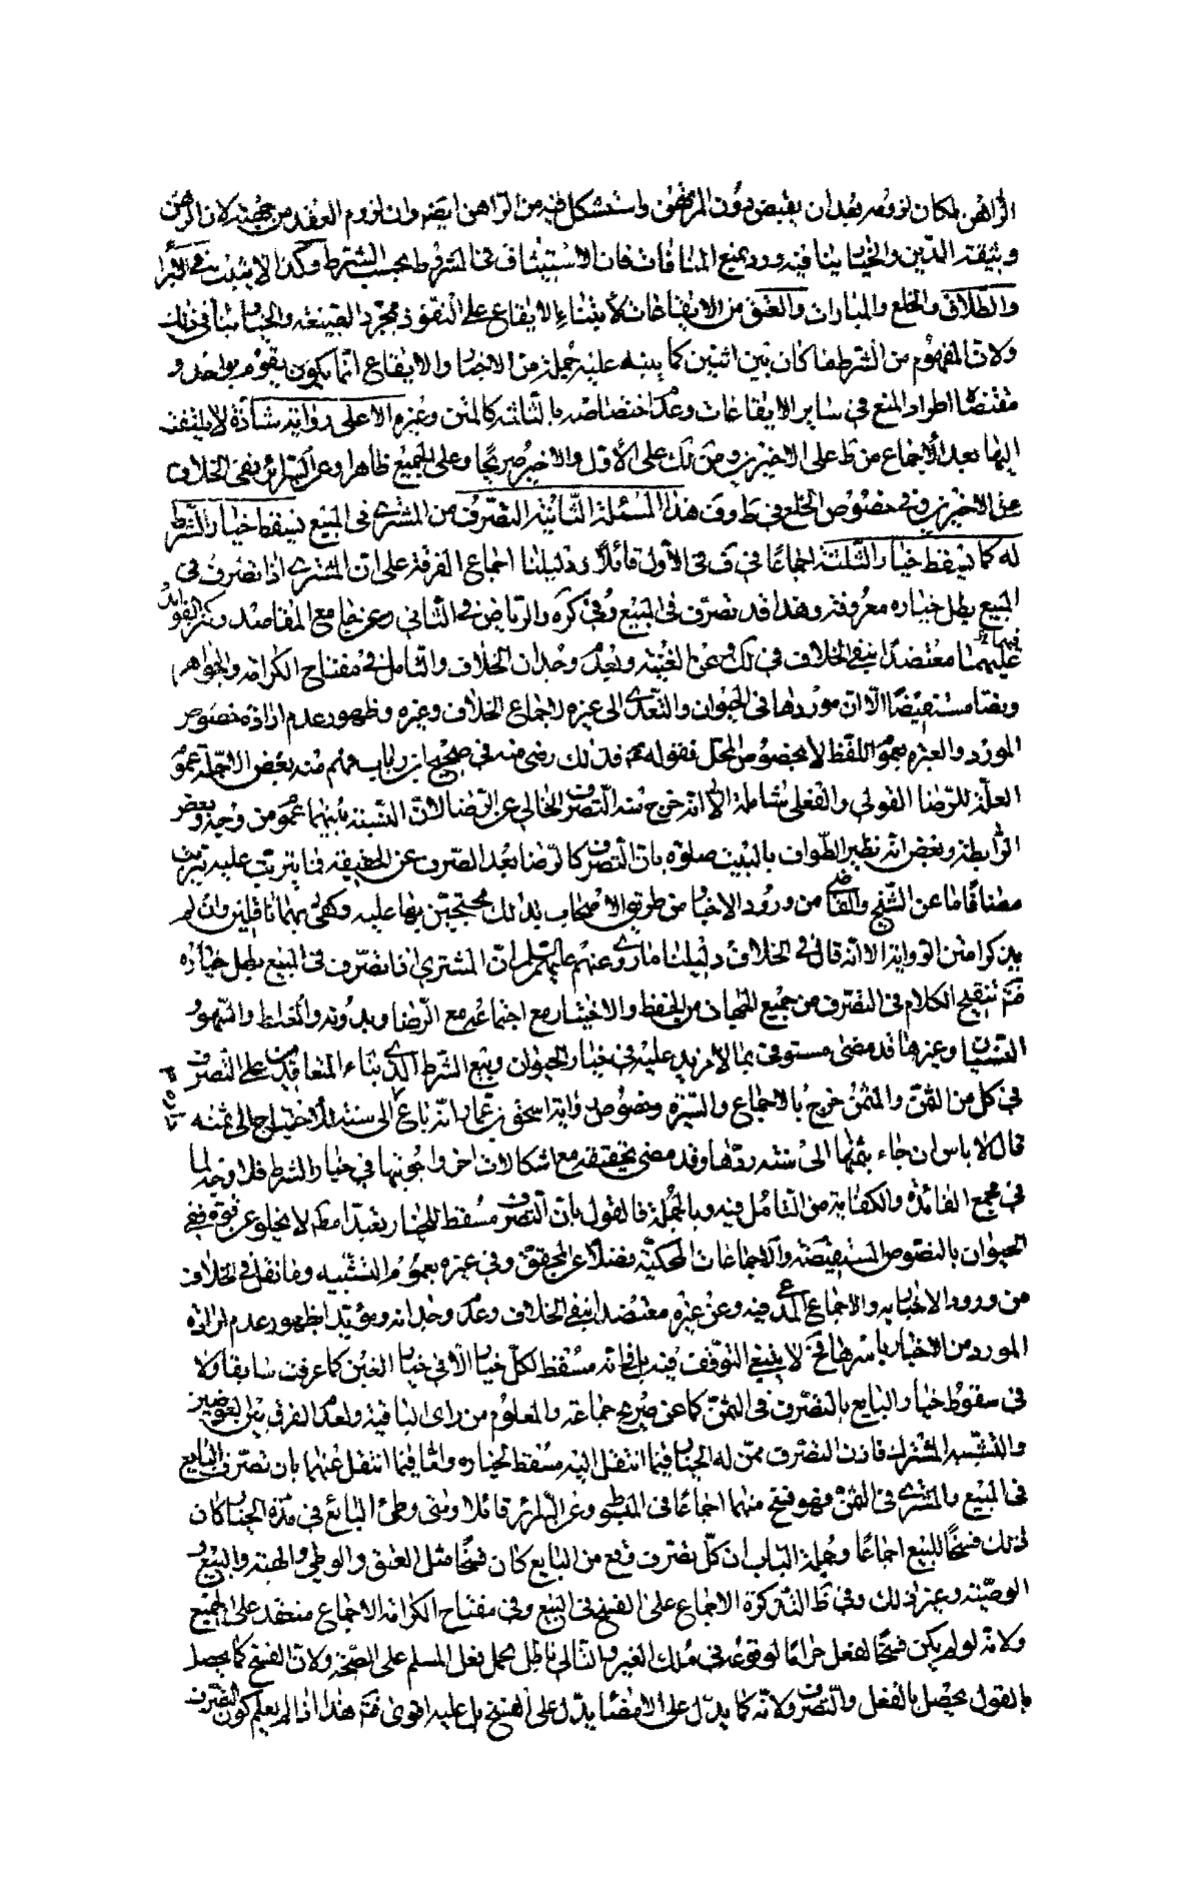 الراهن لمكان لزومه بعد ان يقبض دون المرتهن واستشكل فيه من الراهن ايضا وان لزوم العقد من جهته لان الرهن
وثيقة الدين والخيار ينافيه ورد بمنع المنافات فان الاستيثاق فى المشروط بحسب الشرط وكذا لا يثبت فى الابراء
والطلاق والخلع والمبارات والعتق من الايقاعات لابتناء الايقاع على النفوذ بمجرد الصيغة والخيار ينافى ذلك
ولان المفهوم من الشرط ما كان بين اثنين كما ينبه عليه جملة من الاخبار والايقاع انما يكون يقوم بواحد و
مقتضاه اطراد المنع فى ساير الايقاعات وعدم اختصاصه بالثلثة كالمتن وغيره الا على رواية شاذة لا يلتفت
اليها بعد الاجماع من ط على الاخيرين ومن لك على الاول والاخير صريحا وعلى الجميع ظاهرا وعن السرائر نفى الخلاف
عن الاخيرين وفى خصوص الخلع فى ط وف هذا المسئلة الثانية التصرف من المشترى فى المبيع يسقط خيار الشرط
له كما يسقط خيار الثلثة اجماعا فى ف فى الاول قائلا ودليلنا اجماع الفرقة على ان المشترى اذا تصرف فى
المبيع بطل خياره معروفة وهذا قد تصرف فى المبيع وفى كره والرياض فى الثانى وعن جامع المقاصد وكنز الفوائد
عليهما معتضدا بنفى الخلاف فى لك وعن الغنية وبعدم وجدان الخلاف والتامل فى مفتاح الكرامة والجواهر
ونصا مستفيضا الا ان موردها فى الحيوان والتعدى الى غيره لاجماع الخلاف وغيره وظهور عدم ارادة خصوص
المورد والعبرة بعموم اللفظ لا بخصوص المحل فقوله فذلك رضى منه فى صحيح ابن رئاب فهم منه بعض الاجلة عموم
العلة للرضا القولى والفعلى شاملة الا انه خرج منه التصرف الخالى عن الرضا لان النسبة بينهما عموم من وجه وبعض
الرابطة وبعض انه نظير الطواف بالبيت صلوة بان التصرف كالرضا بعد الصرف عن الحقيقة فى ما يترتب عليه ترتب
مضافا ما عن الشيخ والقاضى من ورود الاخبار من طريق الاصحاب بذلك محتجين بها عليه وكفى بهما ناقلين وان لم
يذكرا متن الرواية الا انه قال فى الخلاف دليلنا ما روى عنهم عليهم السلم ان المشترى اذا تصرف فى المبيع بطل خياره
ثم تنقيح الكلام فى التصرف من جميع الجهات من الحفظ والاختبار مع اجتماعه مع الرضا وبدونه والغلط والسهو و
النسيان وغيرها قد مضى مستوفى بما لا مزيد عليه فى خيار الحيوان وبيع الشرط الذى بناء المتعاقدين على التصرف
فى كل من الثمن والمثمن خرج بالاجماع والسيرة وخصوص رواية اسحق بن عمار انه باع الى سنة للاحتياج الى ثمنه
قال لا باس ان جاء بثمنها الى سنة ردها وقد مضى تحقيقه مع اشكالات اخر واجوبتها فى خيار الشرط فلا وجه لما
فى مجمع الفائدة والكفاية من التامل فيه وبالجملة فالقول بان التصرف مسقط للخيار تعبدا مط لا يخلو عن قوة ففى
الحيوان بالنصوص المستفيضة والاجماعات المحكية فضلا عن المحقق وفى غيره بعموم التشبيه وما نقل فى الخلاف
من ورود الاخبار به والاجماع المدعى فيه وعن غيره معتضدا بنفى الخلاف وعدم وجدانه ويؤيد بظهور عدم ارادة
المورد من الاخبار باسرها فح لا ينبغى التوقف فيه بل فى انه مسقط لكل خيار الا فى خيار الغبن كما عرفت سابقا ولا
فى سقوط خيار البايع بالتصرف فى الثمن كما عن صريح جماعة والمعلوم من راى الباقية ولعدم الفرق بين العوضين
والتشبيه المشترك فاذن التصرف ممن له الخيار فيما انتقل اليه مسقط لخياره واما فيما انتقل عنهما بان تصرف البايع
فى المبيع والمشترى فى الثمن فهو فسخ منهما اجماعا فى المبسوط وعن السرائر قائلا ومتى وطئ البائع فى مدة الخيار كان
ذلك فسخا للبيع اجماعا وجملة الباب ان كل تصرف وقع من البايع كان فسخا مثل العتق والوطى والهبة والبيع و
الوصية وغير ذلك وفى ظ التذكرة الاجماع على الفسخ فى البيع وفى مفتاح الكرامة الاجماع منعقد على الجميع
ولانه لو لم يكن فسخا لفعل حراما لوقوعه فى ملك الغير والتالى باطل بحمل فعل المسلم على الصحة ولان الفسخ كما يحصل
بالقول يحصل بالفعل والتصرف ولانه كما يدل على الامضاء يدل على الفسخ بل عليه اقوى ثم هذا اذا لم يعلم كون التصرف